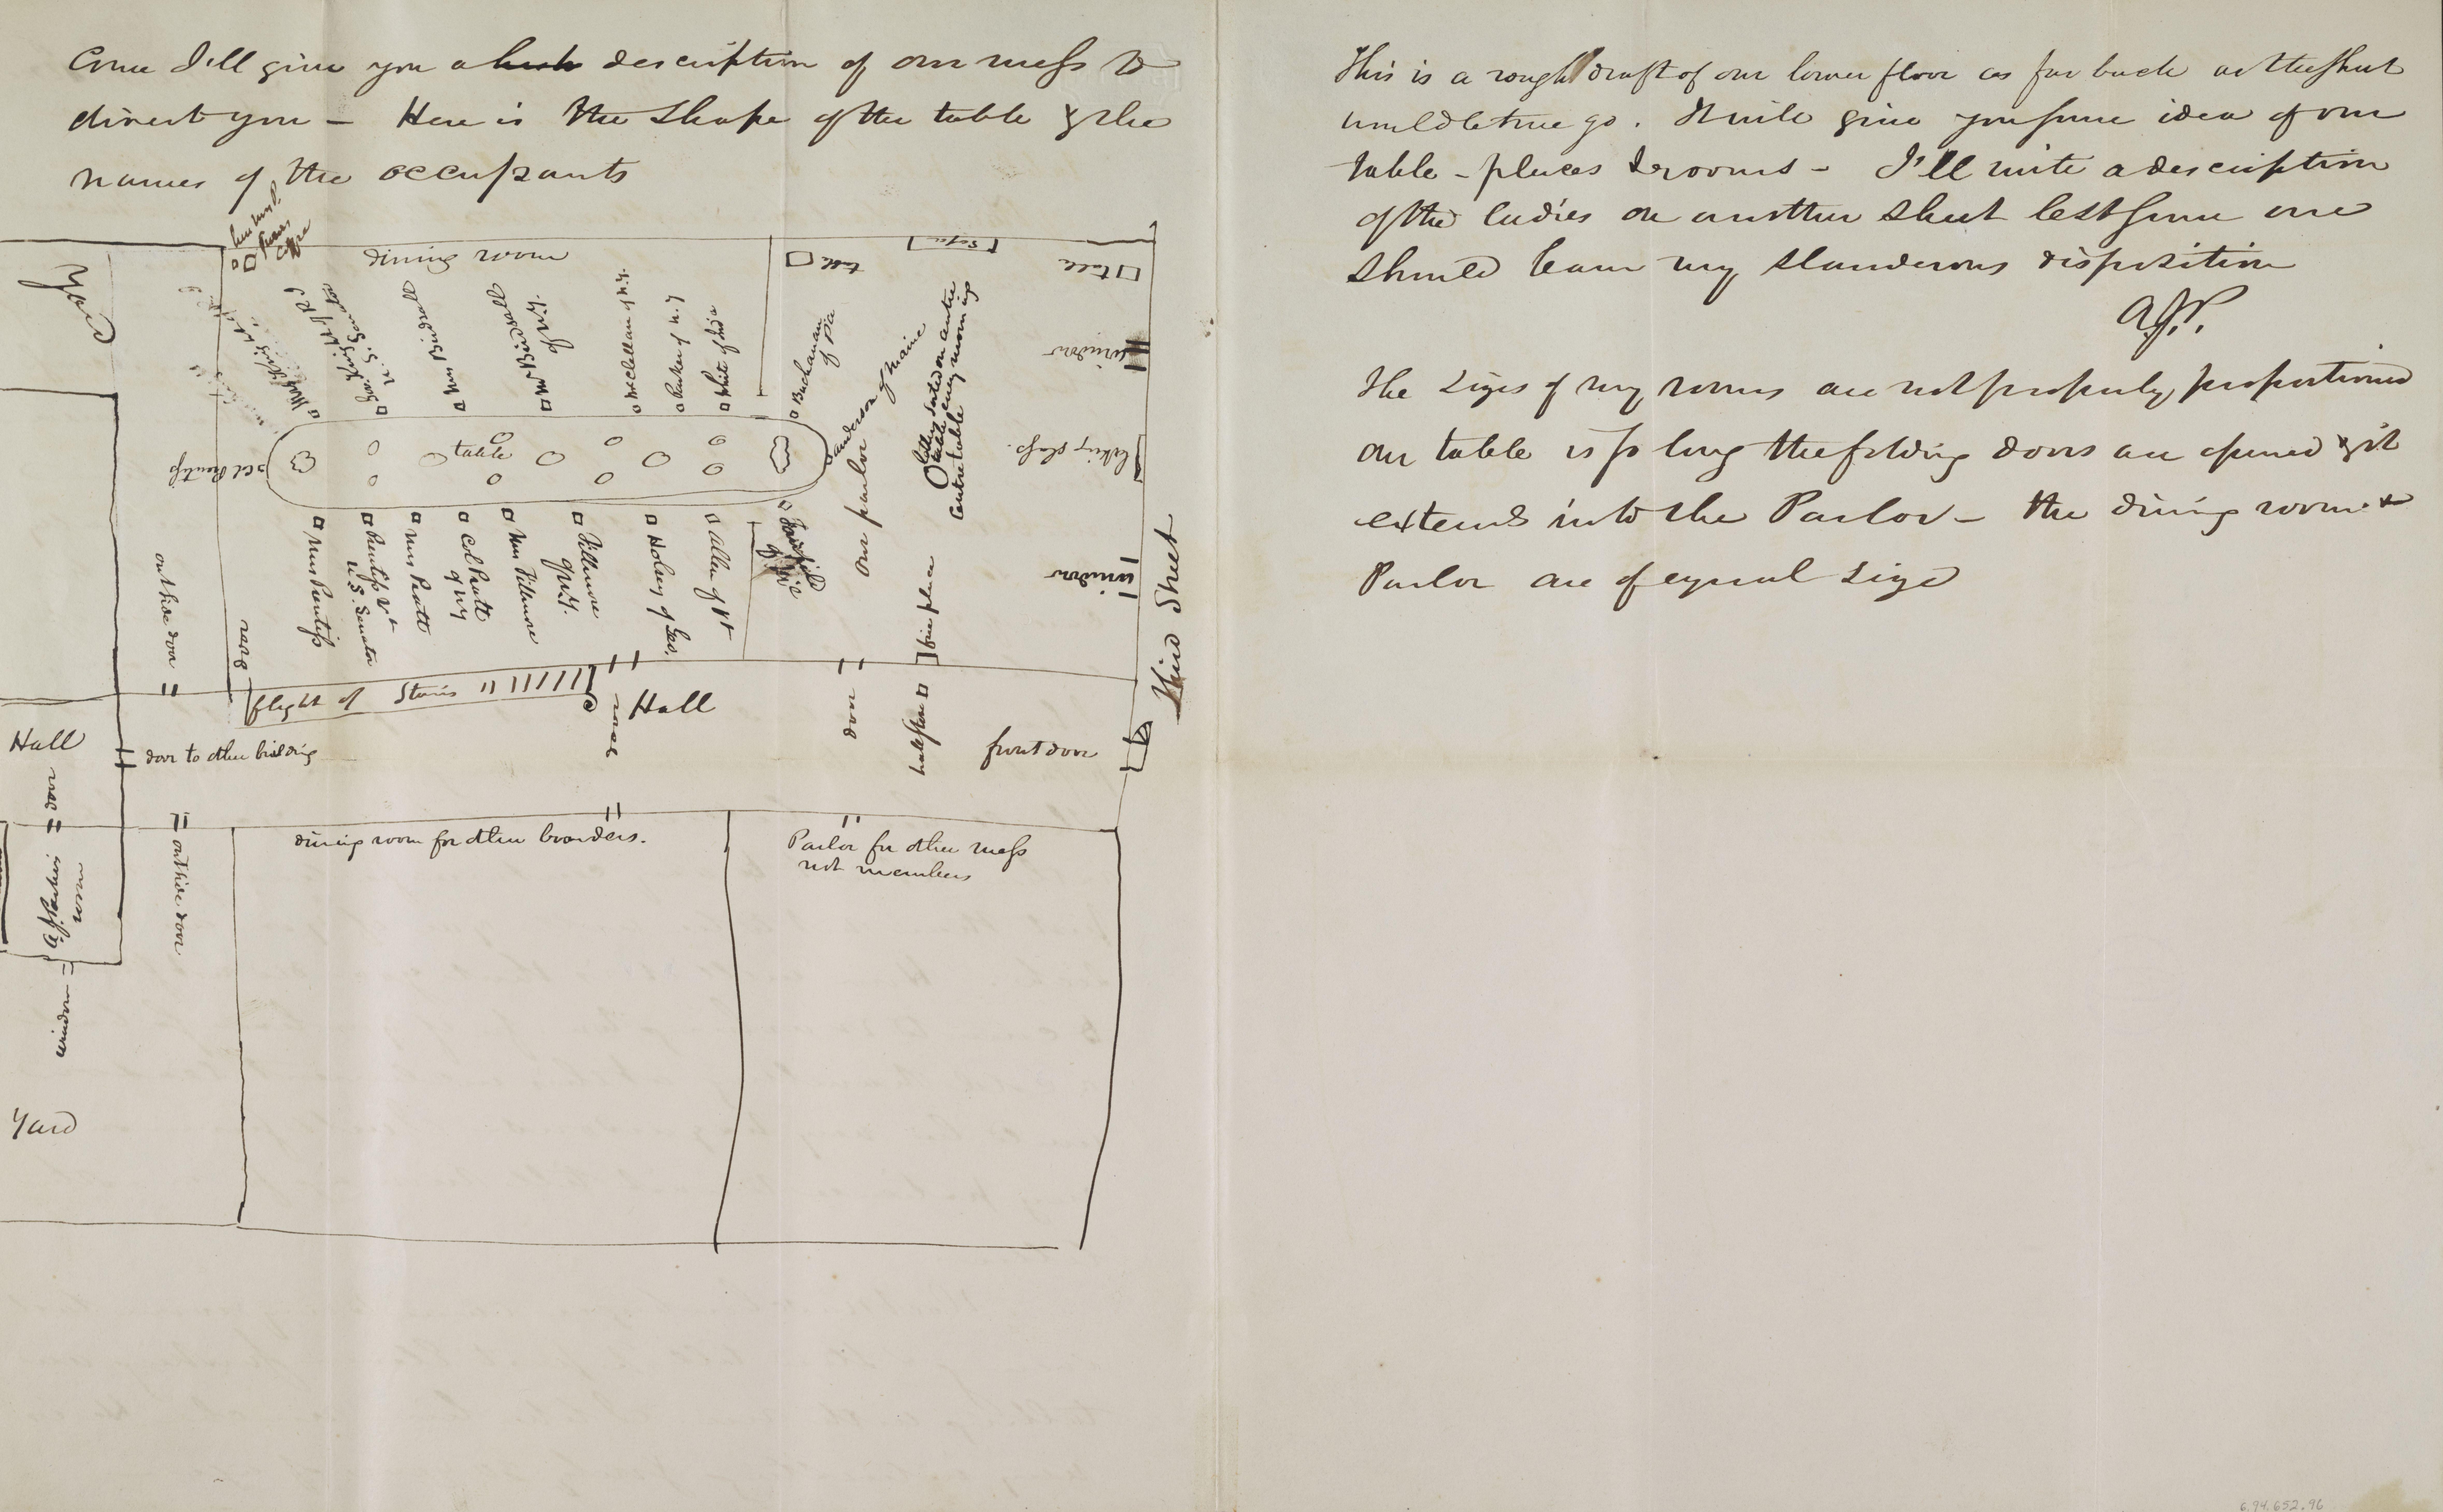 Come I'll give you a description of our mess to
direct you – Here is the shape of the table & the
names of the occupants
dining room
table
Sofa
table
window
looking glass
window
Third Street
Mrs Birdsall
Mr Birdsall
of N.Y.
McClellan of N.Y.
Parker of N.J
White of India
Buchanan
of Pa
Anderson of Maine
our parlor
centre table
U. S. Senator
Col Prentiss
table
Mrs Prentiss
Prentiss Vt
U.S. Senator
Mrs Pratt
Col Pratt
of NY
Mrs Fillmore
Fillmore
of N.Y.
Holsey of Geo.
Allen of Vt
fire place
outside door
door
flight of Stairs
door
Hall
door
front door
Hall
door to other building
door
A.J. Parkers
room
window
outside door
Yard
dining room for other boarders.
Parlor for other mess
not members
This is a rough draft of our lower floor as far back as the sheet
would let me go. It will give you some idea of our
table – places & rooms – I'll write a description
of the ladies on another sheet lest some one
should learn my slanderous disposition
A.J.P.
The sizes of my rooms are not properly proportioned
Our table is so long the folding doors are opened & it
extends into the Parlor – the dining room &
Parlor are of equal size
6.94.652.96